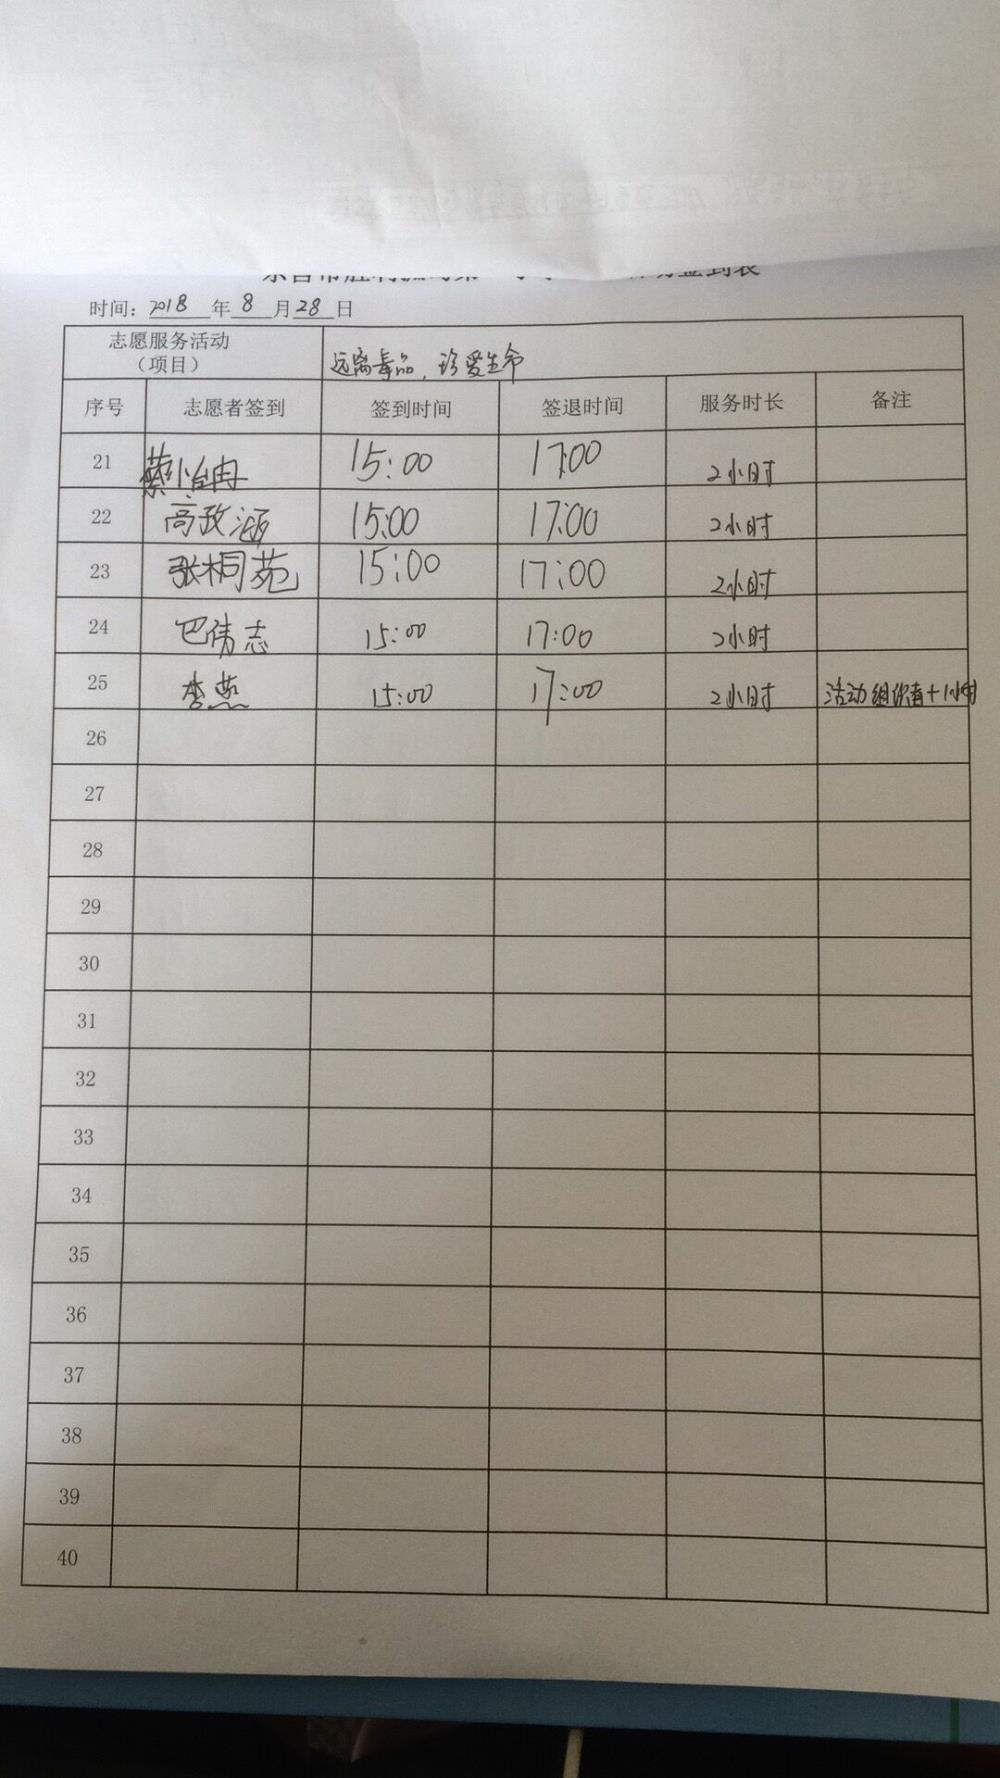 签到表
时间：2018年8月28日
志愿服务活动
（项目） 远离毒品，珍爱生命
序号 志愿者签到 签到时间 签退时间 服务时长 备注
21 蔡怡冉 15:00 17:00 2小时
22 高政涵 15:00 17:00 2小时
23 张桐苑 15:00 17:00 2小时
24 巴倩志 15:00 17:00 2小时
25 李燕 15:00 17:00 2小时 活动组织者+1小时
26
27
28
29
30
31
32
33
34
35
36
37
38
39
40